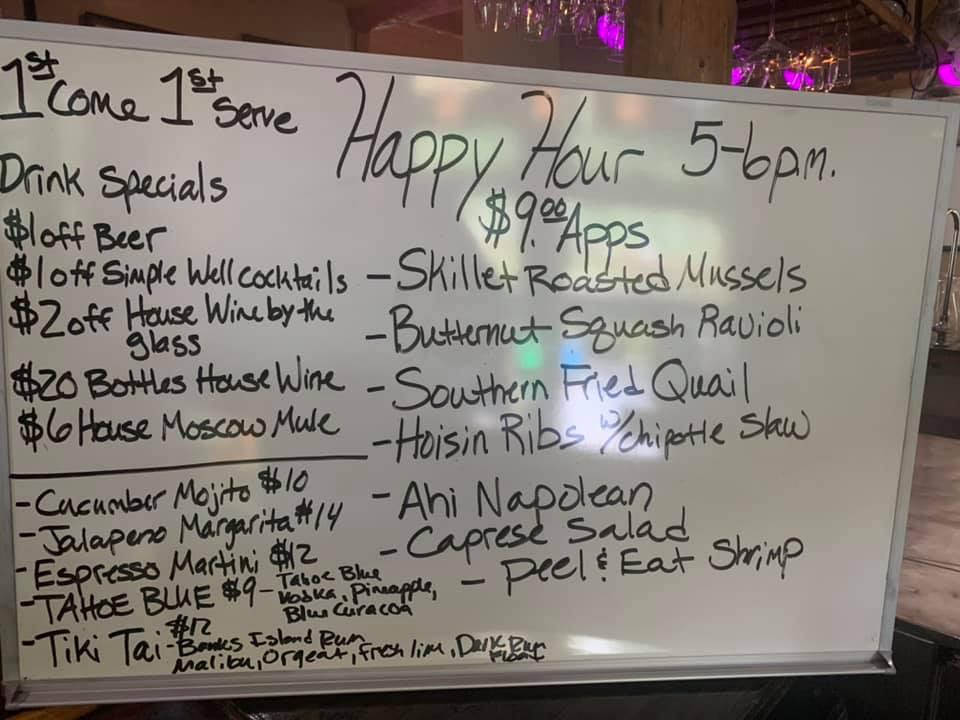 1st Come 1st Serve
Happy Hour 5-6pm.
Drink Specials
$1 off Beer
$1 off Simple Well cocktails
$2 off House Wine by the
glass
$20 Bottles House Wine
$6 House Moscow Mule
- Cucumber Mojito $10
- Jalapeno Margarita $14
- Espresso Martini $12
- TAHOE BLUE $9 - Tahoe Blue
Vodka, Pineapple,
Blue Curacoa
- Tiki Tai $12 - Banks Island Rum
Malibu, Orgeat, fresh lim, Dark Rum
Float
$9.00 Apps
- Skillet Roasted Mussels
- Butternut Squash Ravioli
- Southern Fried Quail
- Hoisin Ribs w/chipotle Slaw
- Ahi Napolean
- Caprese Salad
- Peel & Eat Shrimp